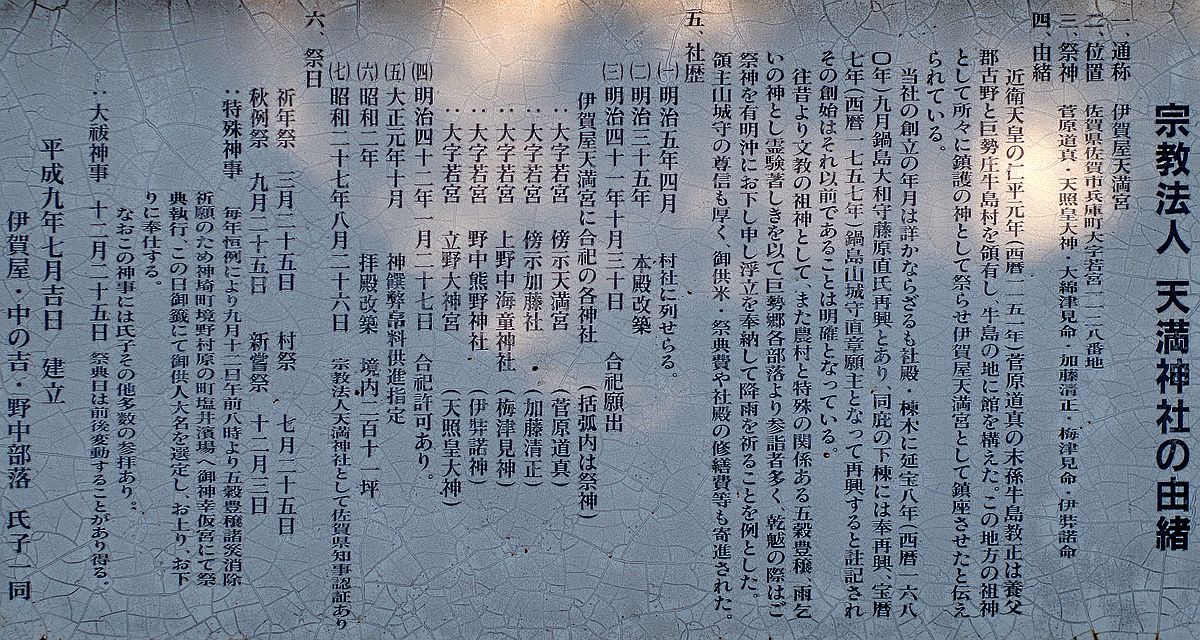 宗教法人 天満神社の由緒
一、通称 伊賀屋天満宮
二、位置 佐賀県佐賀市兵庫町大字若宮一二八番地
三、祭神 菅原道真・天照皇大神・大綿津見命・加藤清正 梅津見命・伊弉諾命
四、由緒
近衛天皇の仁平元年(西暦一一五一年)菅原道真の末孫牛島教正は養父
郡古野と巨勢庄牛島村を領有し、牛島の地に館を構えた。この地方の祖神
として所々に鎮護の神として祭らせ伊賀屋天満宮として鎮座させたと伝え
られている。
当社の創立の年月は詳かならざるも社殿・棟木に延宝八年(西暦一六八
〇年)九月鍋島大和守藤原直氏再興とあり、同庇の下棟には奉再興、宝暦
七年(西暦一七五七年)鍋島山城守直章願主となって再興すると註記され
その創始はそれ以前であることは明確となっている。
往昔より文教の祖神として、また農村と特殊の関係ある五穀豊穣、雨乞
いの神として霊験著しきを以て巨勢郷各部落より参詣者多く、乾魃の際はご
祭神を有明沖にお下し申し浮立を奉納して降雨を祈ることを例とした。
領主山城守の尊信も厚く、御供米・祭典費や社殿の修繕費等も寄進された。
五、社歴
㈠明治五年四月 村社に列せらる。
㈡明治三十五年 本殿改築
㈢明治四十一年十月三十日 合祀願出
伊賀屋天満宮に合祀の各神社 (括弧内は祭神)
：大字若宮 傍示天満宮 (菅原道真)
：大字若宮 傍示加藤社 (加藤清正)
：大字若宮 上野中海童神社 (梅津見神)
：大字若宮 野中熊野神社 (伊弉諾神)
：大字若宮 立野大神宮 (天照皇大神)
㈣明治四十二年一月二十七日 合祀許可あり。
㈤大正元年十月 神饌弊帛料供進指定
㈥昭和二年 拝殿改築 境内二百十一坪
㈦昭和二十七年八月二十六日 宗教法人天満神社として佐賀県知事認証あり
六、祭日
祈年祭 三月二十五日 村祭 七月二十五日
秋例祭 九月二十五日 新嘗祭 十二月三日
：特殊神事 毎年恒例により九月十二日午前八時より五穀豊穣諸災消除
祈願のため神埼町境野村原の町塩井濱場へ御神幸仮宮にて祭
典執行、この日御籤にて御供人大名を選定し、お上り、お下
りに奉仕する。
なおこの神事には氏子その他多数の参拝あり。
：大祓神事 十二月二十五日 祭典日は前後変動することがあり得る。
平成九年七月吉日 建立
伊賀屋・中の吉・野中部落 氏子一同